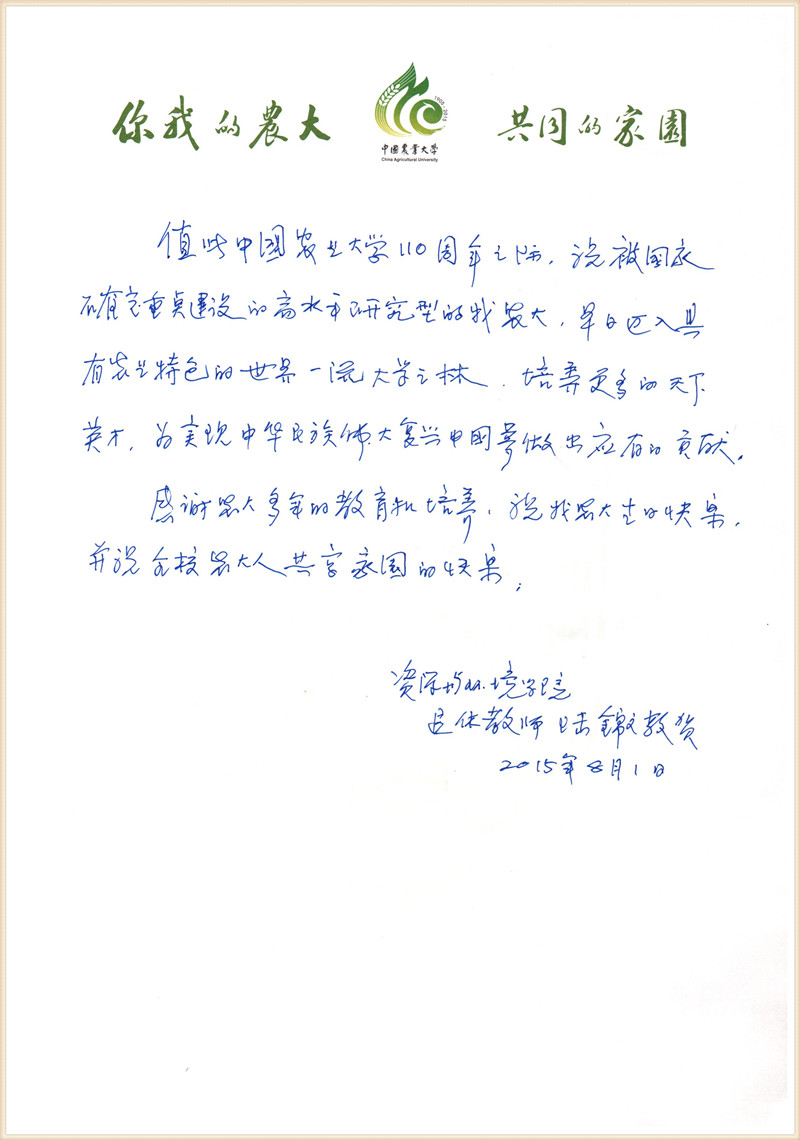 你我的農大
1905-2015
中国農業大学
China Agricultural University
共同的家園
值此中国农业大学110周年之际，祝被国家
确定重点建设的高水平研究型的我农大，早日迈入具
有农业特色的世界一流大学之林，培养更多的天下
英才，为实现中华民族伟大复兴中国梦做出应有的贡献。
感谢农大多年的教育和培养，祝我农大生日快乐，
并祝全校农大人共享家园的快乐；
资源与环境学院
退休教师 陆錦文敬贺
2015年8月1日